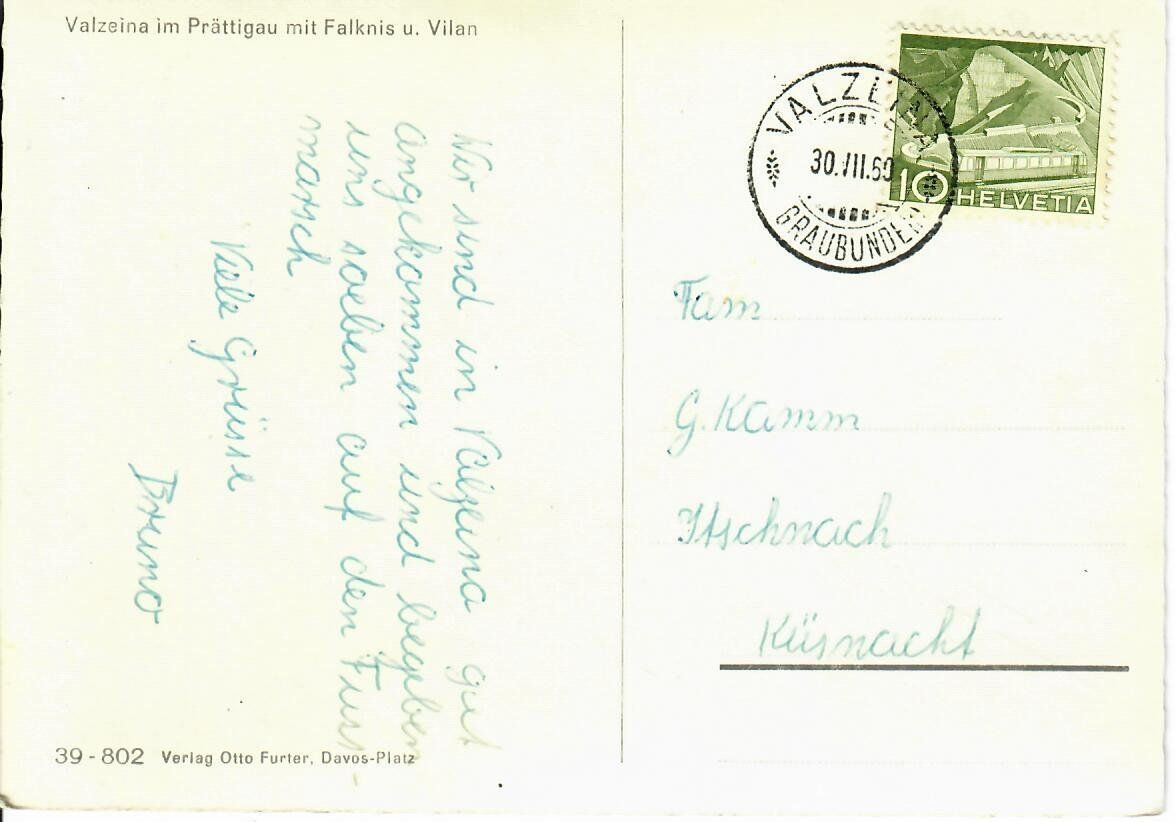 Valzeina im Prättigau mit Falknis u. Vilan
Wir sind in Valzeina gut
angekommen und begeben
uns soeben auf den Fuss-
marsch
Viele Grüsse
Bruno
39-802 Verlag Otto Furter, Davos-Platz
VALZEINA
GRAUBÜNDEN
10 HELVETIA
Fam
G. Kamm
Itschnach
Küsnacht